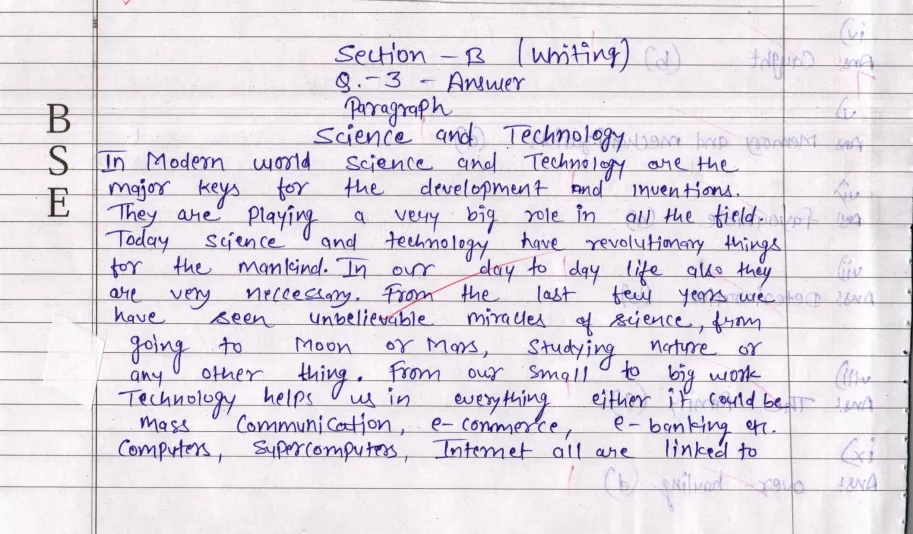 B
S
E
Section - B (writing)
Q.-3 - Answer
Paragraph
Science and Technology
In Modern world Science and Technology are the
major keys for the development and inventions.
They are Playing a very big role in all the field.
Today Science and technology have revolutionary things
for the mankind. In our day to day life also they
are very neccessary. From the last few years we
have seen unbelievable miracles of science, from
going to Moon or Mars, Studying nature or
any other thing. From our small to big work
Technology helps us in everything either it could be
mass Communication, e-commerce, e-banking etc.
Computers, Supercomputers, Internet all are linked to